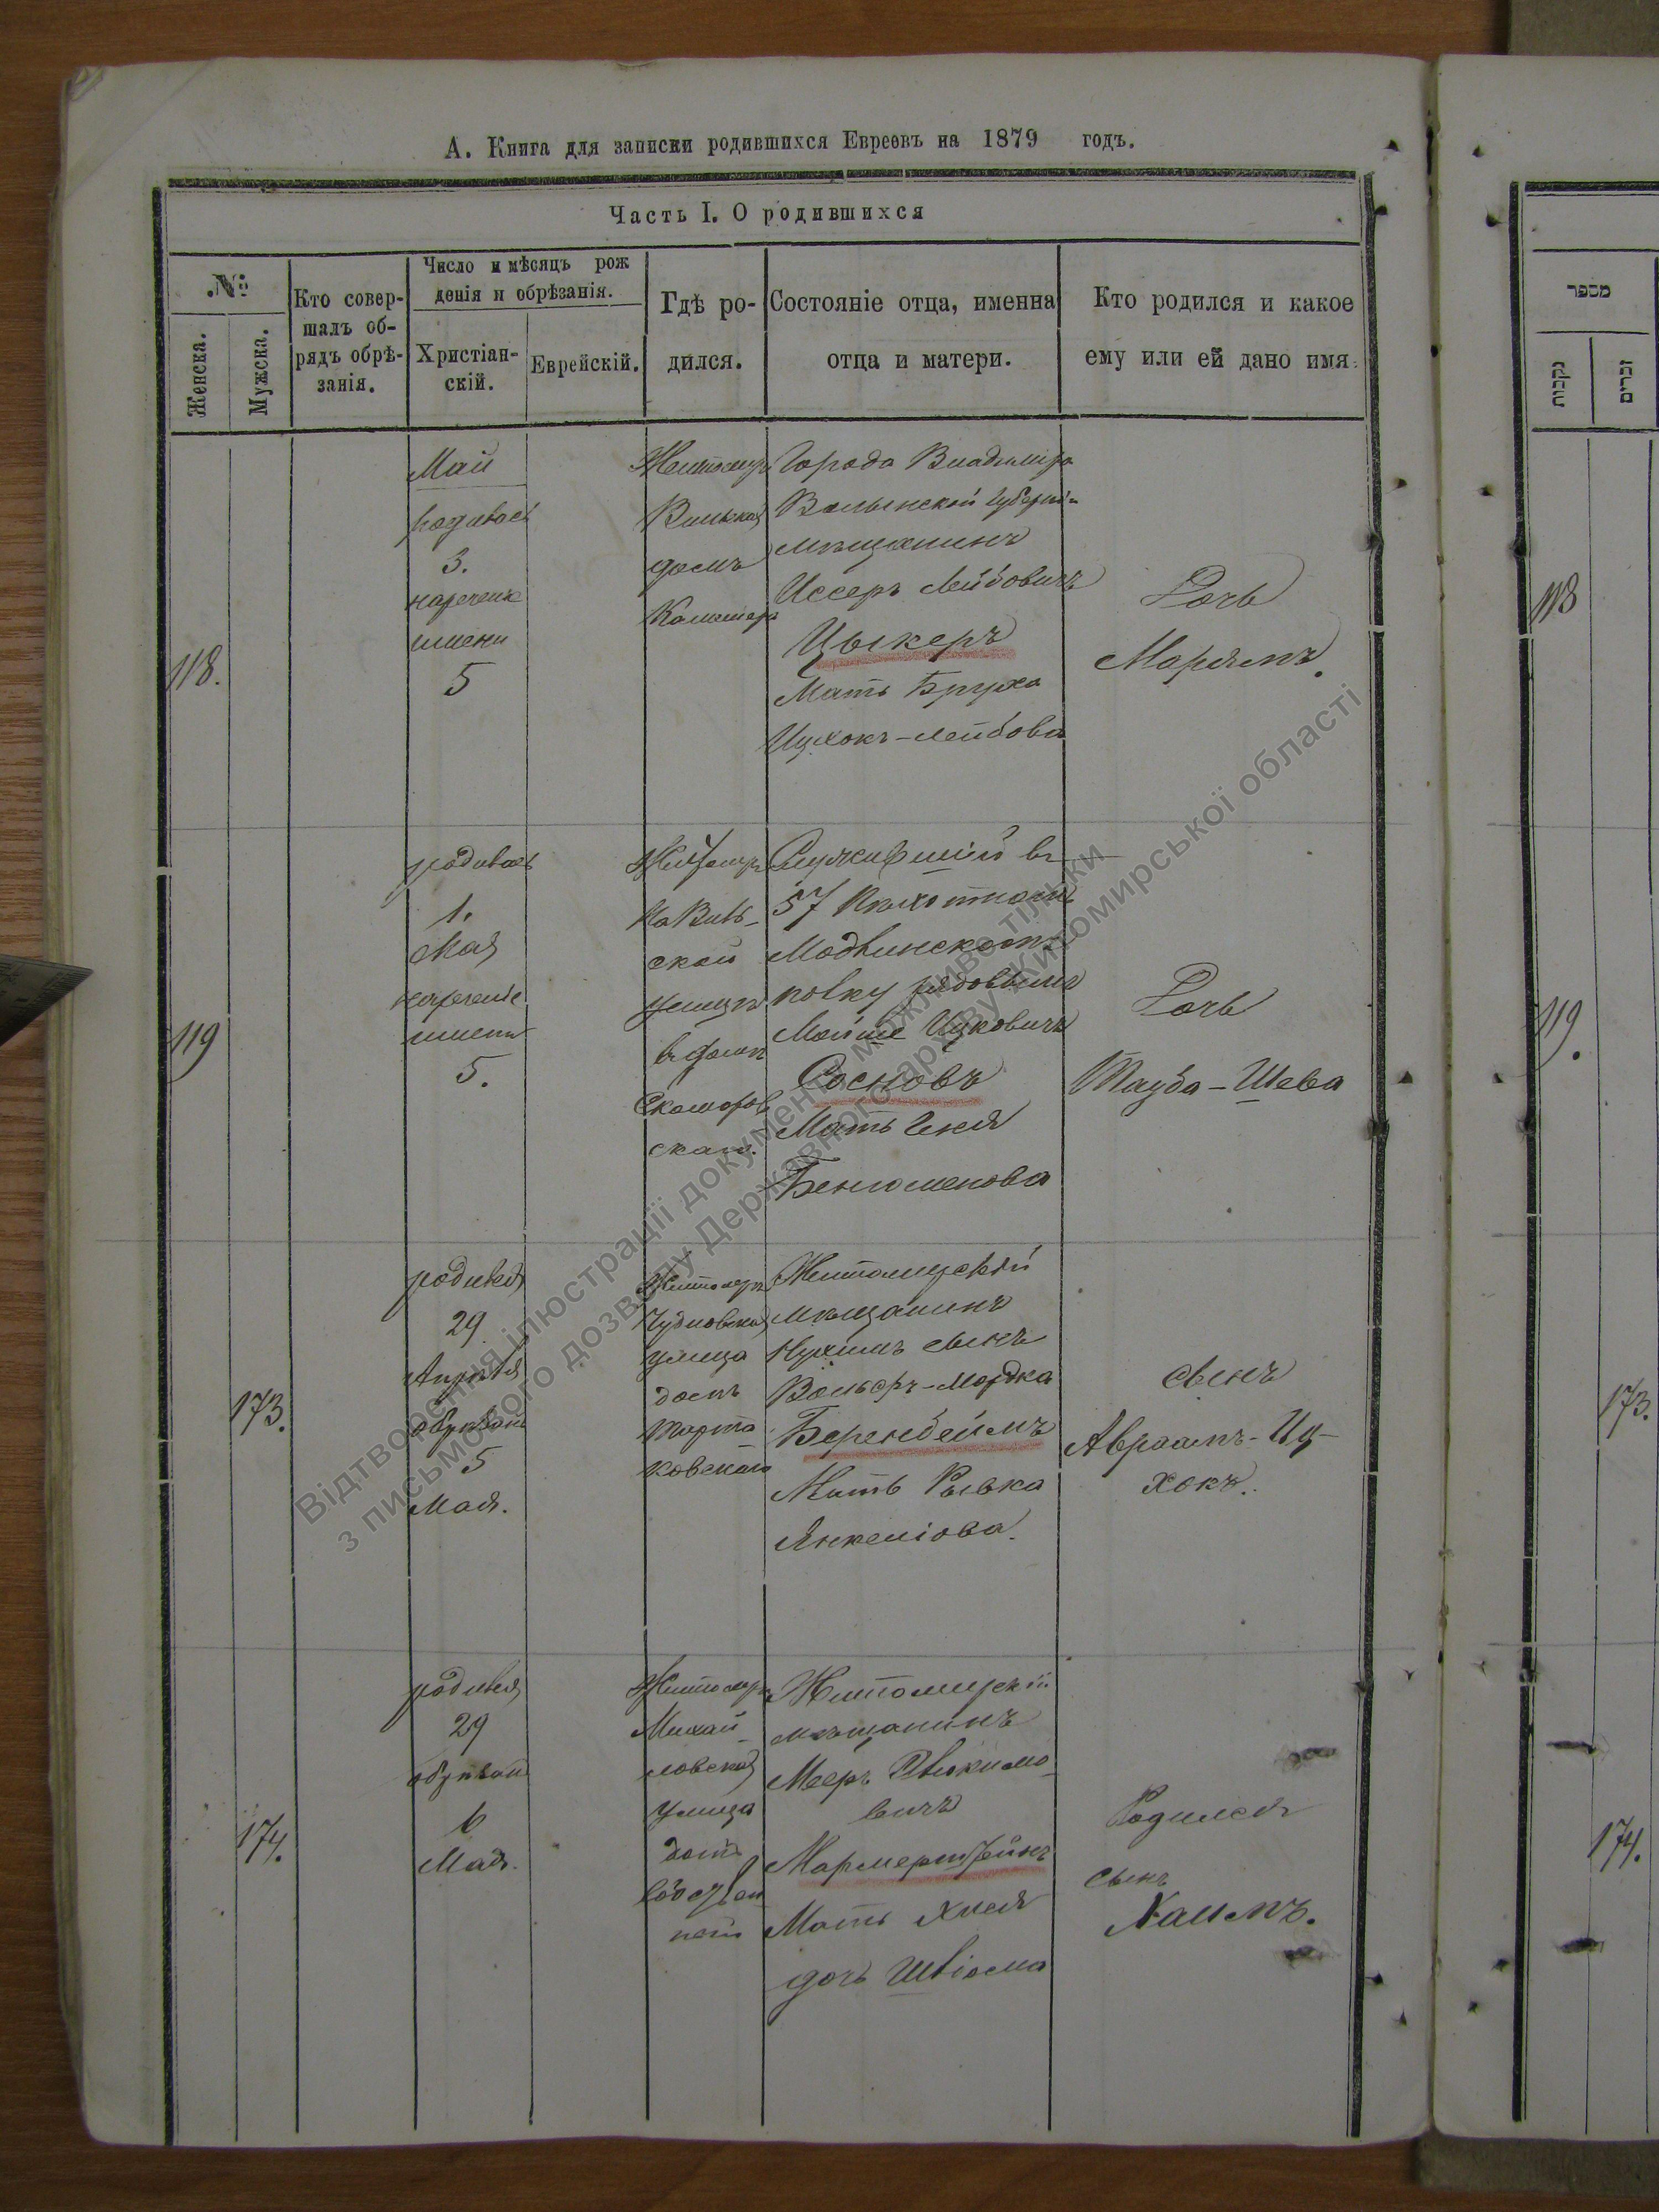 А. Книга для записки родившихся Евреовъ на 1879 годъ.
Часть I. О родившихся
№
Женска.
Мужска.
Кто совер-
шалъ об-
рядъ обрѣ-
занія.
Число и мѣсяцъ рож
денія и обрѣзанія.
Христіан-
скій.
Еврейскій.
Гдѣ ро-
дился.
Состояніе отца, именна
отца и матери.
Кто родился и какое
ему или ей дано имя.
118.
Май
родилась
3.
наречение
имени
5
Житомир
Вильская
домъ
Города Владимира
Волынской Губерніи
мѣщанинъ
Иссеръ Лейбовичъ
Цыкеръ
Мать Бруха
Ицхокъ-Лейбова
Дочь
Марьямъ.
119
родилась
1.
Мая
наречение
имени
5.
Житомиръ
на Виль-
ской
улицѣ
в домѣ
Скоморов
скаго.
Служившій въ
57 Пѣхотномъ
Модлинскомъ
полку рядовымъ
Мойше Ицковичъ
Сосновъ
Мать Геня
Беньюменова
Дочь
Тауба-Шева
173.
родився
29
Апрѣля
обрѣзанъ
5
Мая.
Житомиръ
Чудновская
улица
домъ
Марто
ковскаго
Житомирскій
мѣщанинъ
Нухимъ сынъ
Вольфъ-Мордка
Беренбеймъ
Мать Рывка
Янкеліова.
сынъ
Авраамъ-Иц-
хокъ.
174.
родився
29
обрѣзанъ
6
Мая.
Житомиръ
Михай-
ловская
улица
домъ
Житомирскій
мѣщанинъ
Мееръ
вичъ
Мармерштейнъ
Мать Хная
дочь Швіома
Родился
сынъ
Хаимъ.
מספר
נקבות
זכרים
118
119.
173.
174.
Відтворення ілюстрації документа можливо тільки
з письмового дозволу Державного архіву Житомирської області